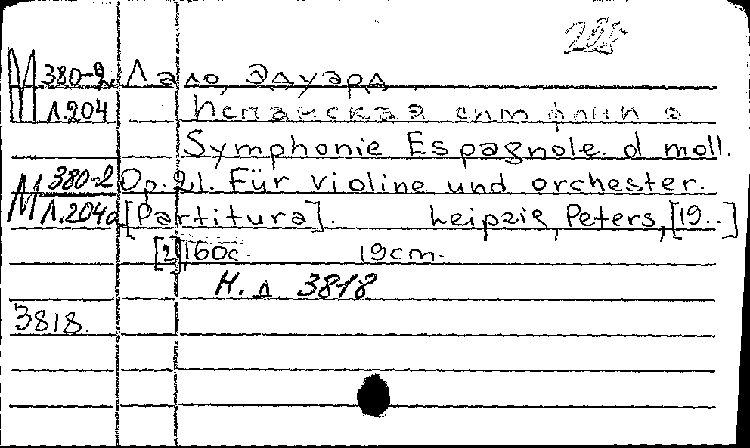 225
М 380-2 Лало, Эдуард
Л.204 Испанская симфония
Symphonie Espagnole. d moll.
М 380-2 Op. 21. Für violine und orchester.
Л.204а [Partitura]. Leipzig, Peters, [19..]
[2] 160с. 19cm.
Н. д 3818
3818.